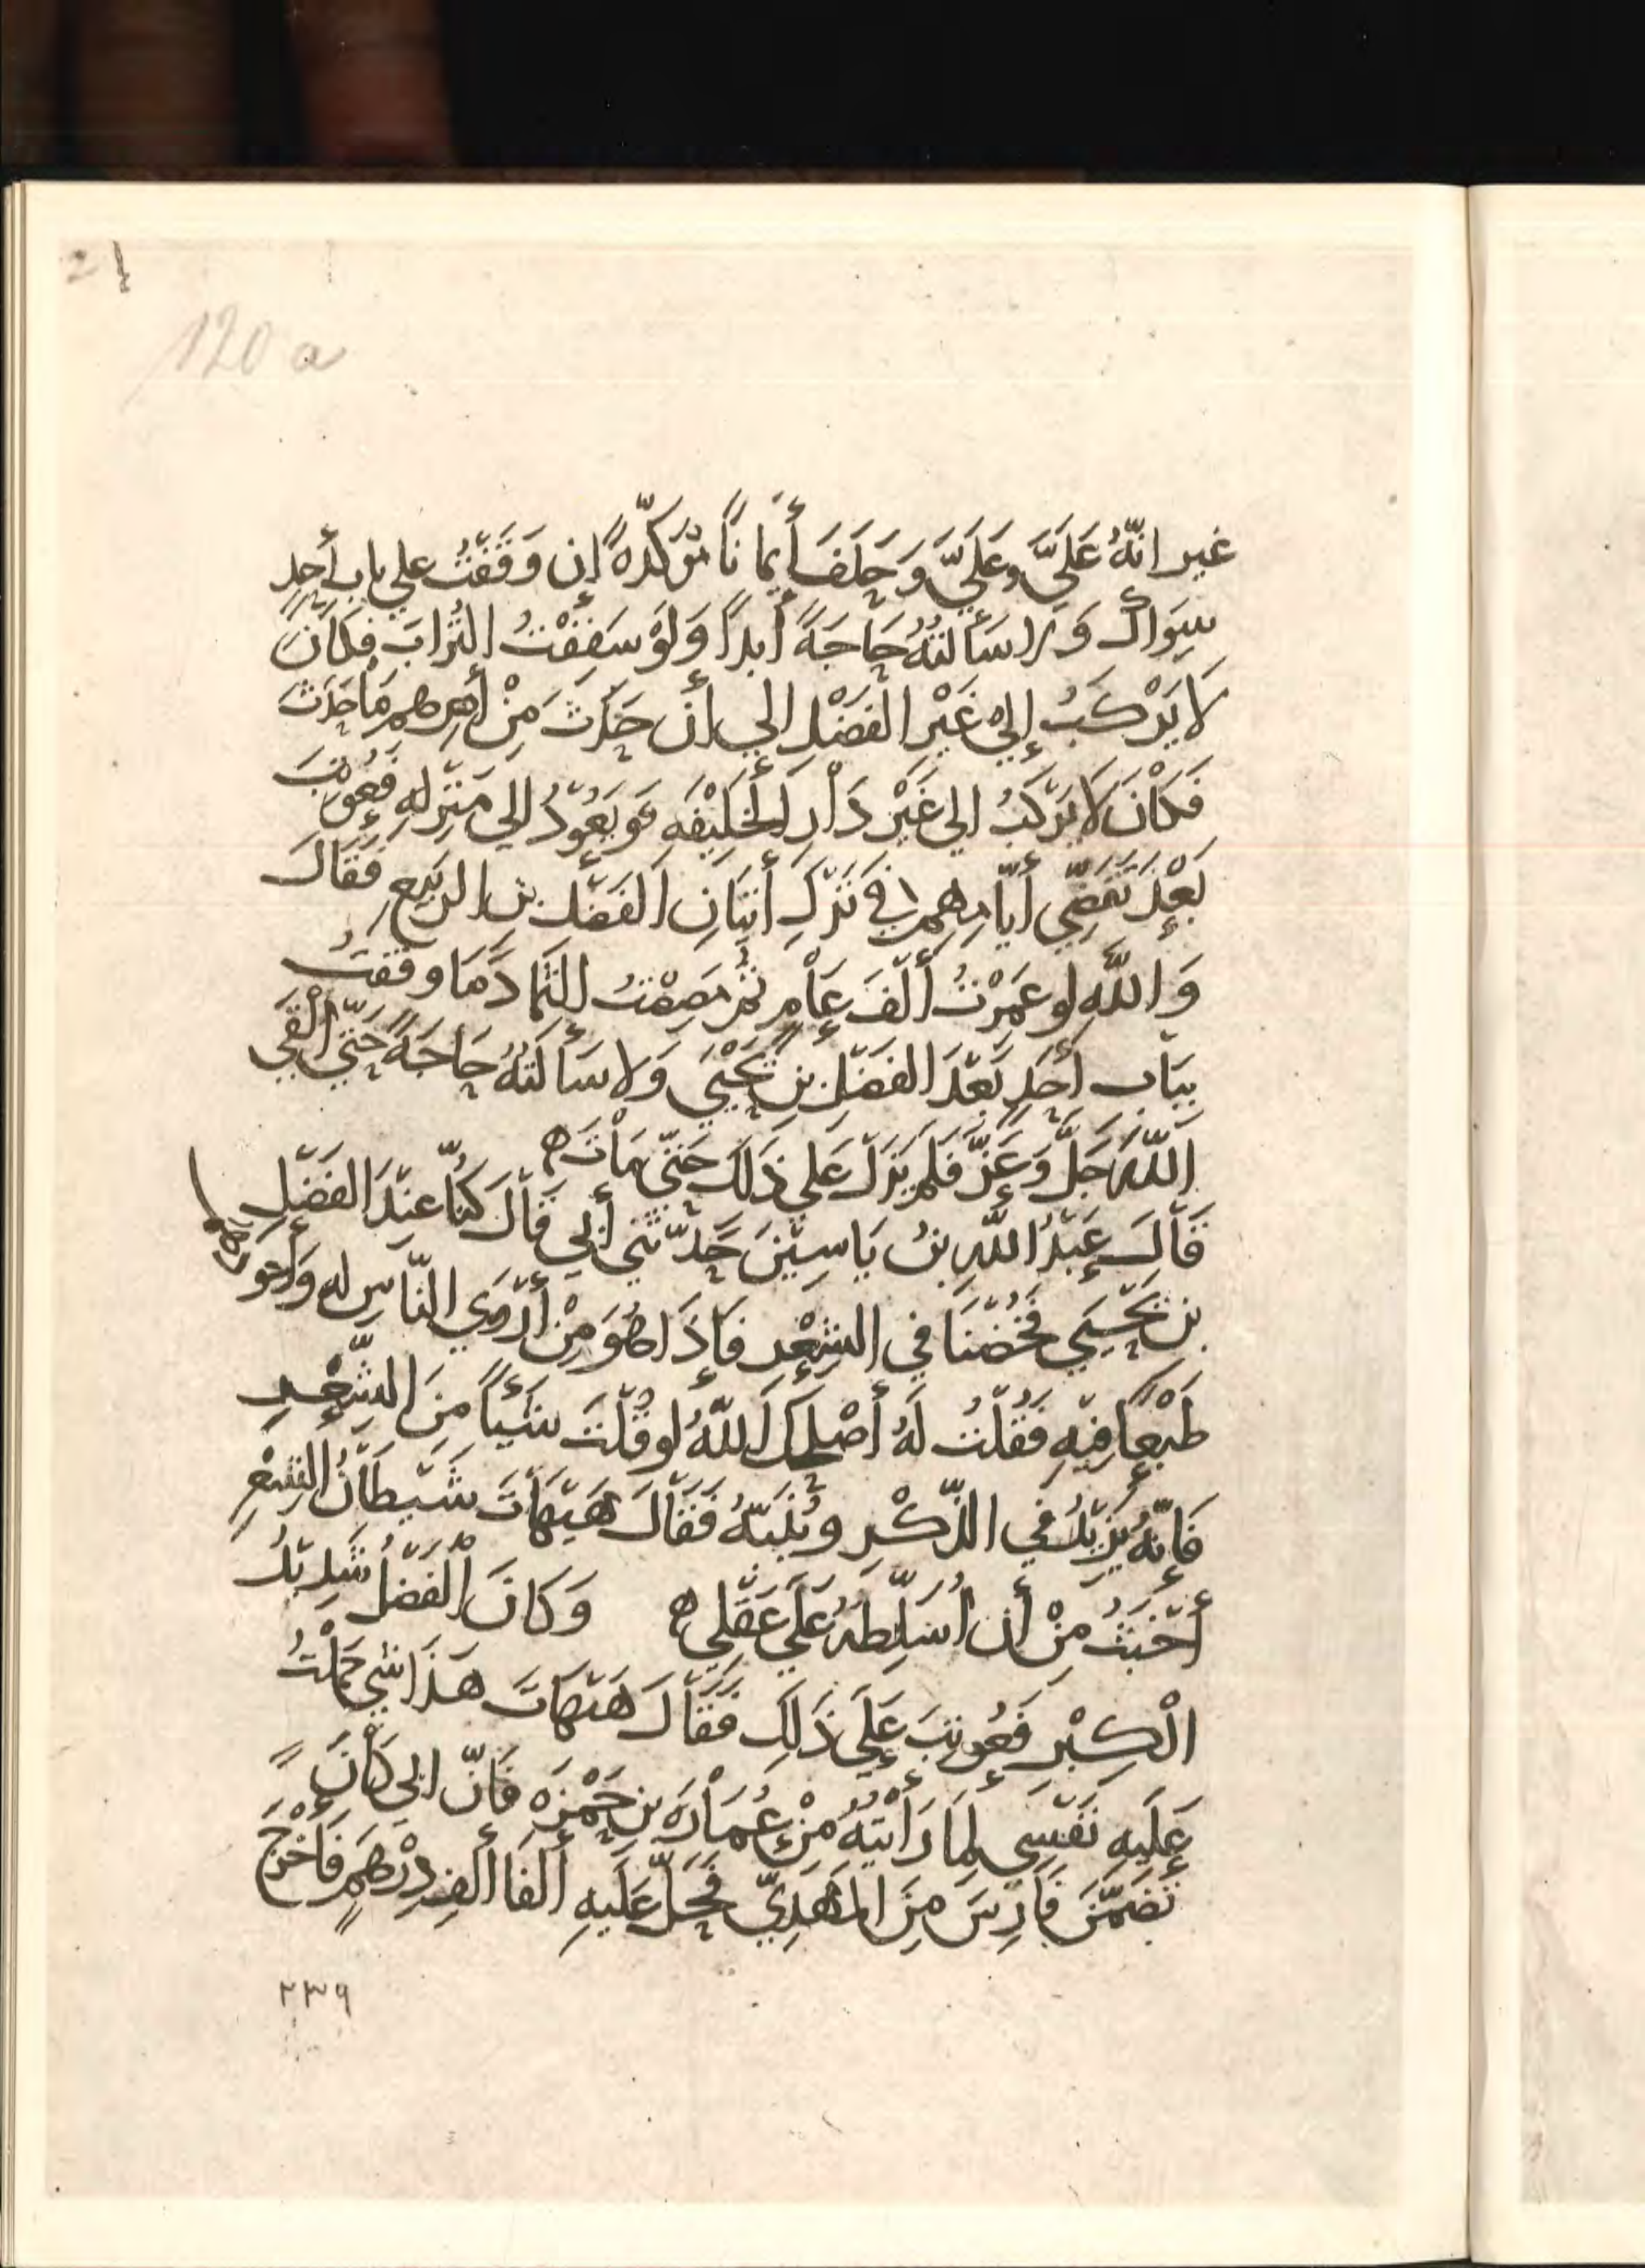 120 a
غير انّهُ عَلَيَّ وعَلَيَّ وَحَلَفَ أَيمانًا مُوَكّدهً إن وَقَفْتُ علي باب أحدٍ
سِوَاك وَلا سَأَلتُهُ حَاجَةً أبدًا وَلَوْ سَفِفْتُ التُّرابَ فكَانَ
لا يَرْكَبُ إليٰ غَيْرِ الفَضْلِ إلي أن حَدَثَ مِنْ أمرِهم مَا حَدَثَ
فَكَانَ لا يَرْكَبُ الي غَيْرِ دَارِ الخَلِيْفَهِ وَيَعُوْدُ الي مَنزِلِهِ فعُوتِبَ
بَعْدَ تَقَضِّي أيّامِهِم في تَرْكِ أتيَانِ الفَضْل بن الرَبيعِ فَقَالَ
وَاللَّهِ لو عَمِرْتُ أَلْفَ عَامٍ ثُمَّ مَصِصْتُ الثَمادَ مَا وقَفْتُ
بِبَاب أَحَدٍ بَعْدَ الفَضْلِ بنِ يَحْيَي وَلا سَألتُهُ حَاجَةً حَتّي أَلْقَي
اللّهَ جَلَّ وَعَزَّ فلَم يَزَلْ عَلي ذَلكَ حَتّي مَاتَ ه
قَالَ عَبْدُ اللّهِ بنُ يَاسِيْنَ حَدّثَني أبي قَالَ كُنّا عِنْدَ الفَضْلِ
بن يَحْيَي فَخُضْنَا في الشِعْرِ فَإِذَا هُوَ مِنْ أرْوَي النّاسِ له وَأجوَدهم
طَبْعًا فِيْهِ فَقُلْتُ لَهُ أصْلَحَكَ اللّهُ لو قُلْتَ شَيْئاً مِنَ الشِّعْرِ
فَإنّهُ يَزِيْدُ في الذّكْرِ ويُنَبِّهُ فَقَالَ هَيْهَاتَ شَيْطَانُ الشِعْرِ
أَخْبَثُ مِنْ أن أُسَلّطَهُ عَلَي عَقْلي ه وَكَانَ الْفَضْلُ شَدِيْدُ
الْكِبْرِ فَعُوتِبَ عَلَي ذَلِكَ فَقَالَ هَيْهَاتَ هَذَا شي حَمَلْتُ
عَلَيهِ نَفْسِي لِمَا رَأَيْتهُ مِنْ عُمَارَةَ بن حَمْزَه فَانّ ابي كَانَ
تَضَمَّنَ فَارِسَ مِنَ المَهْدِيِّ فَحَلَّ عَلَيهِ ألفَا ألفِ دِرْهَمٍ فَأَخْرَجَ
٢٣٩